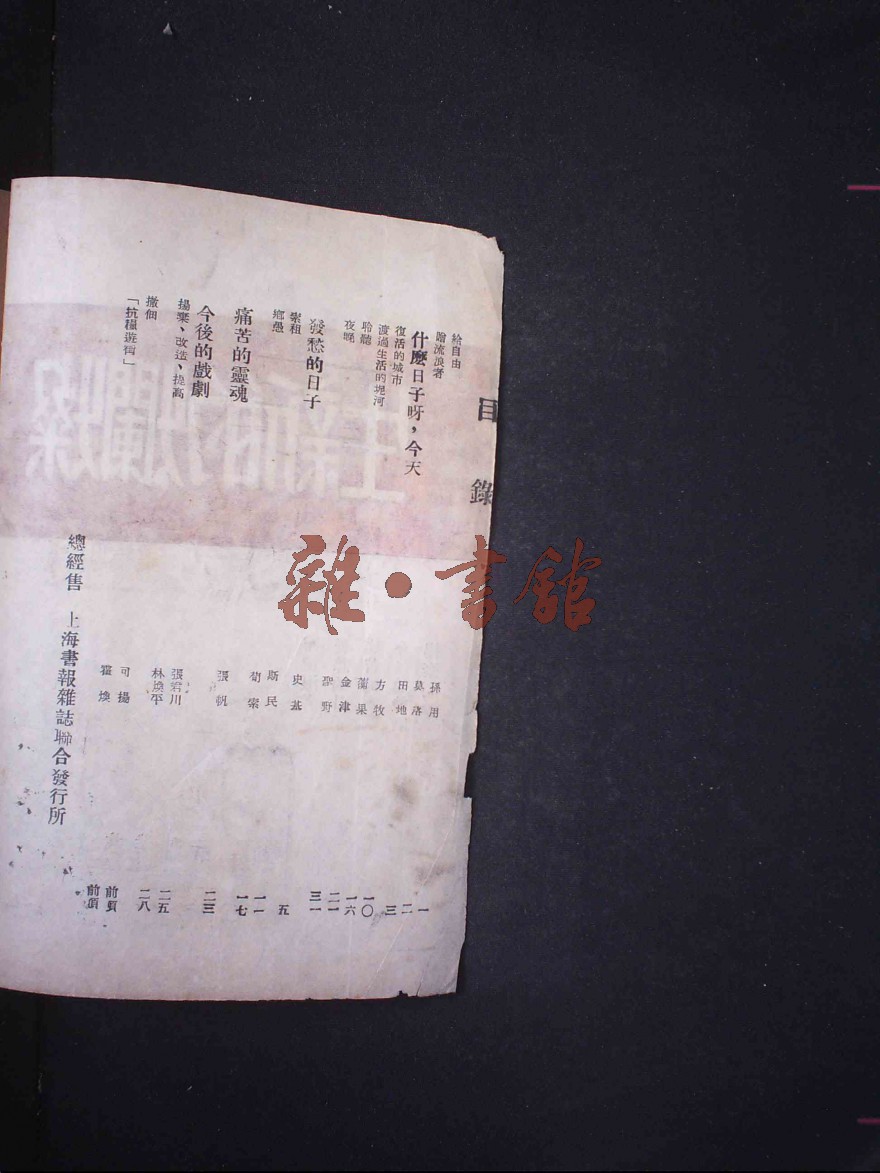 目錄
給自由 孫用 一
贈流浪者 莫洛 二
什麼日子呀，今天 田地 三
復活的城市 方牧 一〇
渡過生活的堤河 果 一六
聆聽 金津 二一
夜晚 聖野 三一
發愁的日子 史基 五
索租 斯民 一一
鄉愚 索 一七
痛苦的靈魂 張帆 二三
今後的戲劇 張君川 二五
揚棄、改造、提高 林煥平 二八
撤佃 可揚 前頁
「抗糧遊街」 霍煥 前頁
總經售 上海書報雜誌聯合發行所
雜·書館